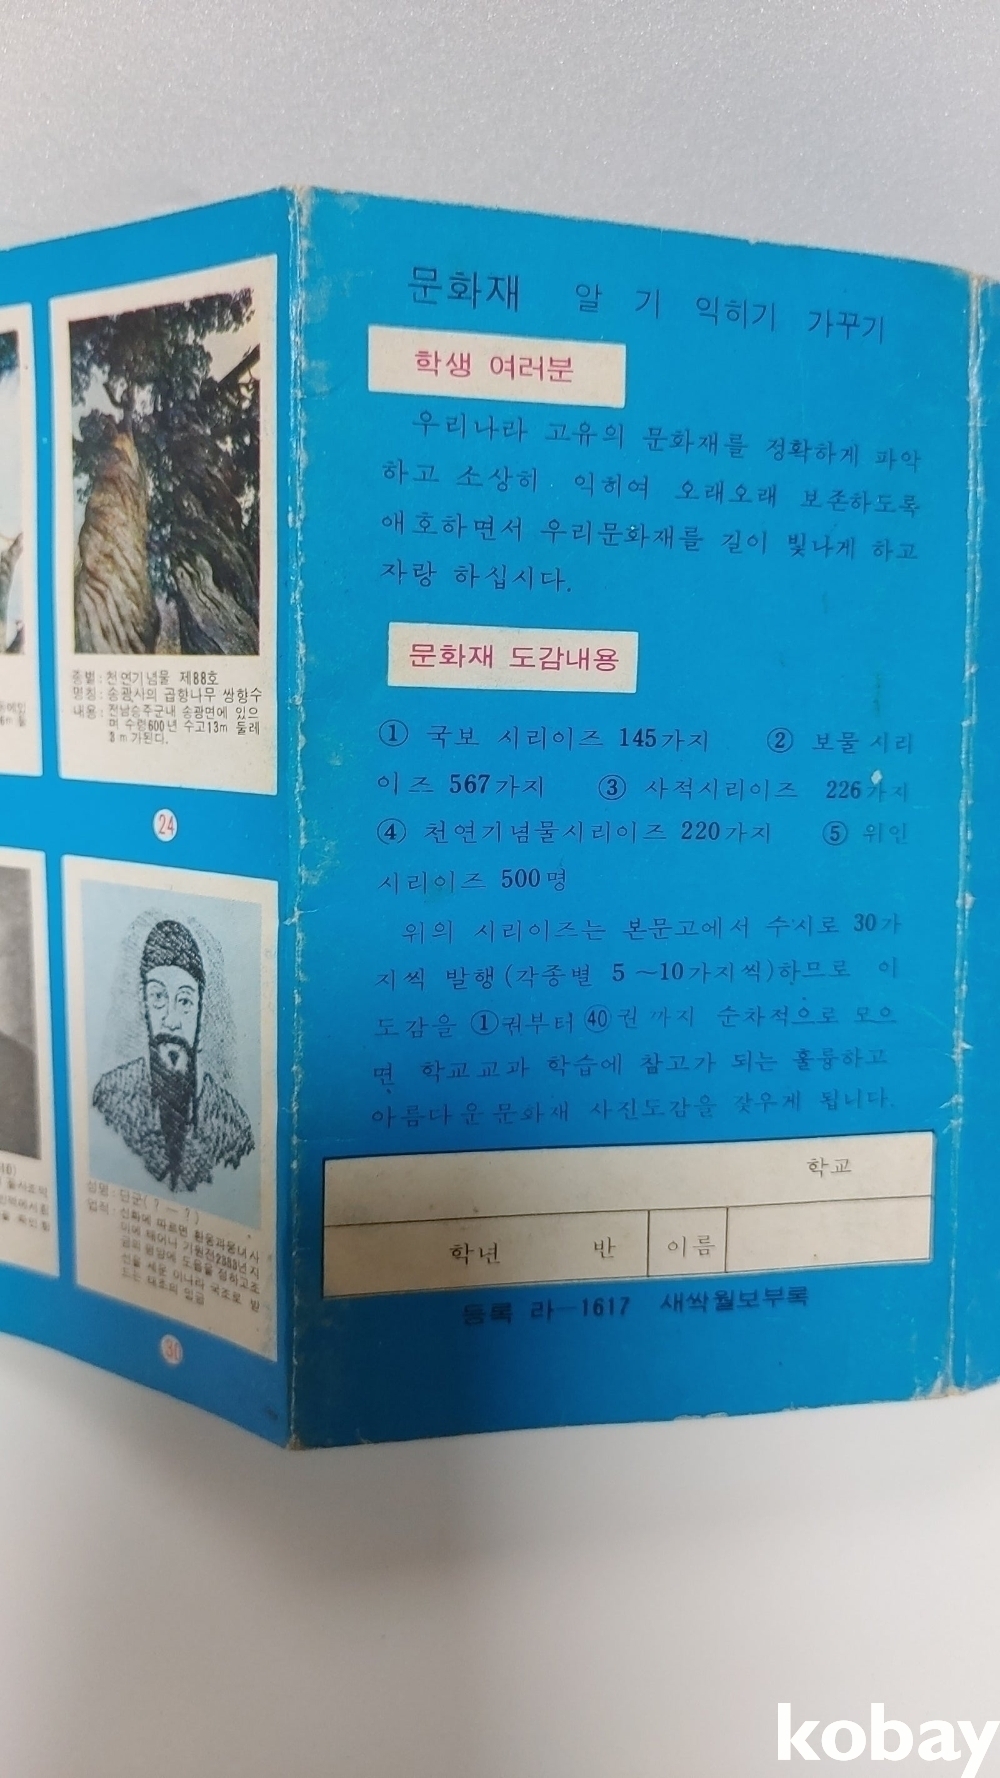 문화재 알기 익히기 가꾸기
학생 여러분
우리나라 고유의 문화재를 정확하게 파악
하고 소상히 익히여 오래오래 보존하도록
애호하면서 우리문화재를 길이 빛나게 하고
자랑 하십시다.
문화재 도감내용
① 국보 시리이즈 145가지 ② 보물 시리
이즈 567가지 ③ 사적시리이즈 226가지
④ 천연기념물시리이즈 220가지 ⑤ 위인
시리이즈 500명
위의 시리이즈는 본문고에서 수시로 30가
지씩 발행(각종별 5~10가지씩)하므로 이
도감을 ①권부터 ㊵권 까지 순차적으로 모으
면 학교교과 학습에 참고가 되는 훌륭하고
아름다운문화재 사진도감을 갖우게 됩니다.
학교
학년 반 이름
등록 라—1617 새싹월보부록
종별:천연기념물 제88호
명칭:송광사의 곱항나무 쌍향수
내용:전남승주군내 송광면에 있으
며 수령600년 수고13m 둘레
3m가된다.
24
성명:단군(?—?)
업적:신화에 따르면 환웅과웅녀사
이에 태어나 기원전2333년지
금의 평양에 도읍을 정하고조
선을 세운 이나라 국조로 받
드는 태초의 임금
30
kobay